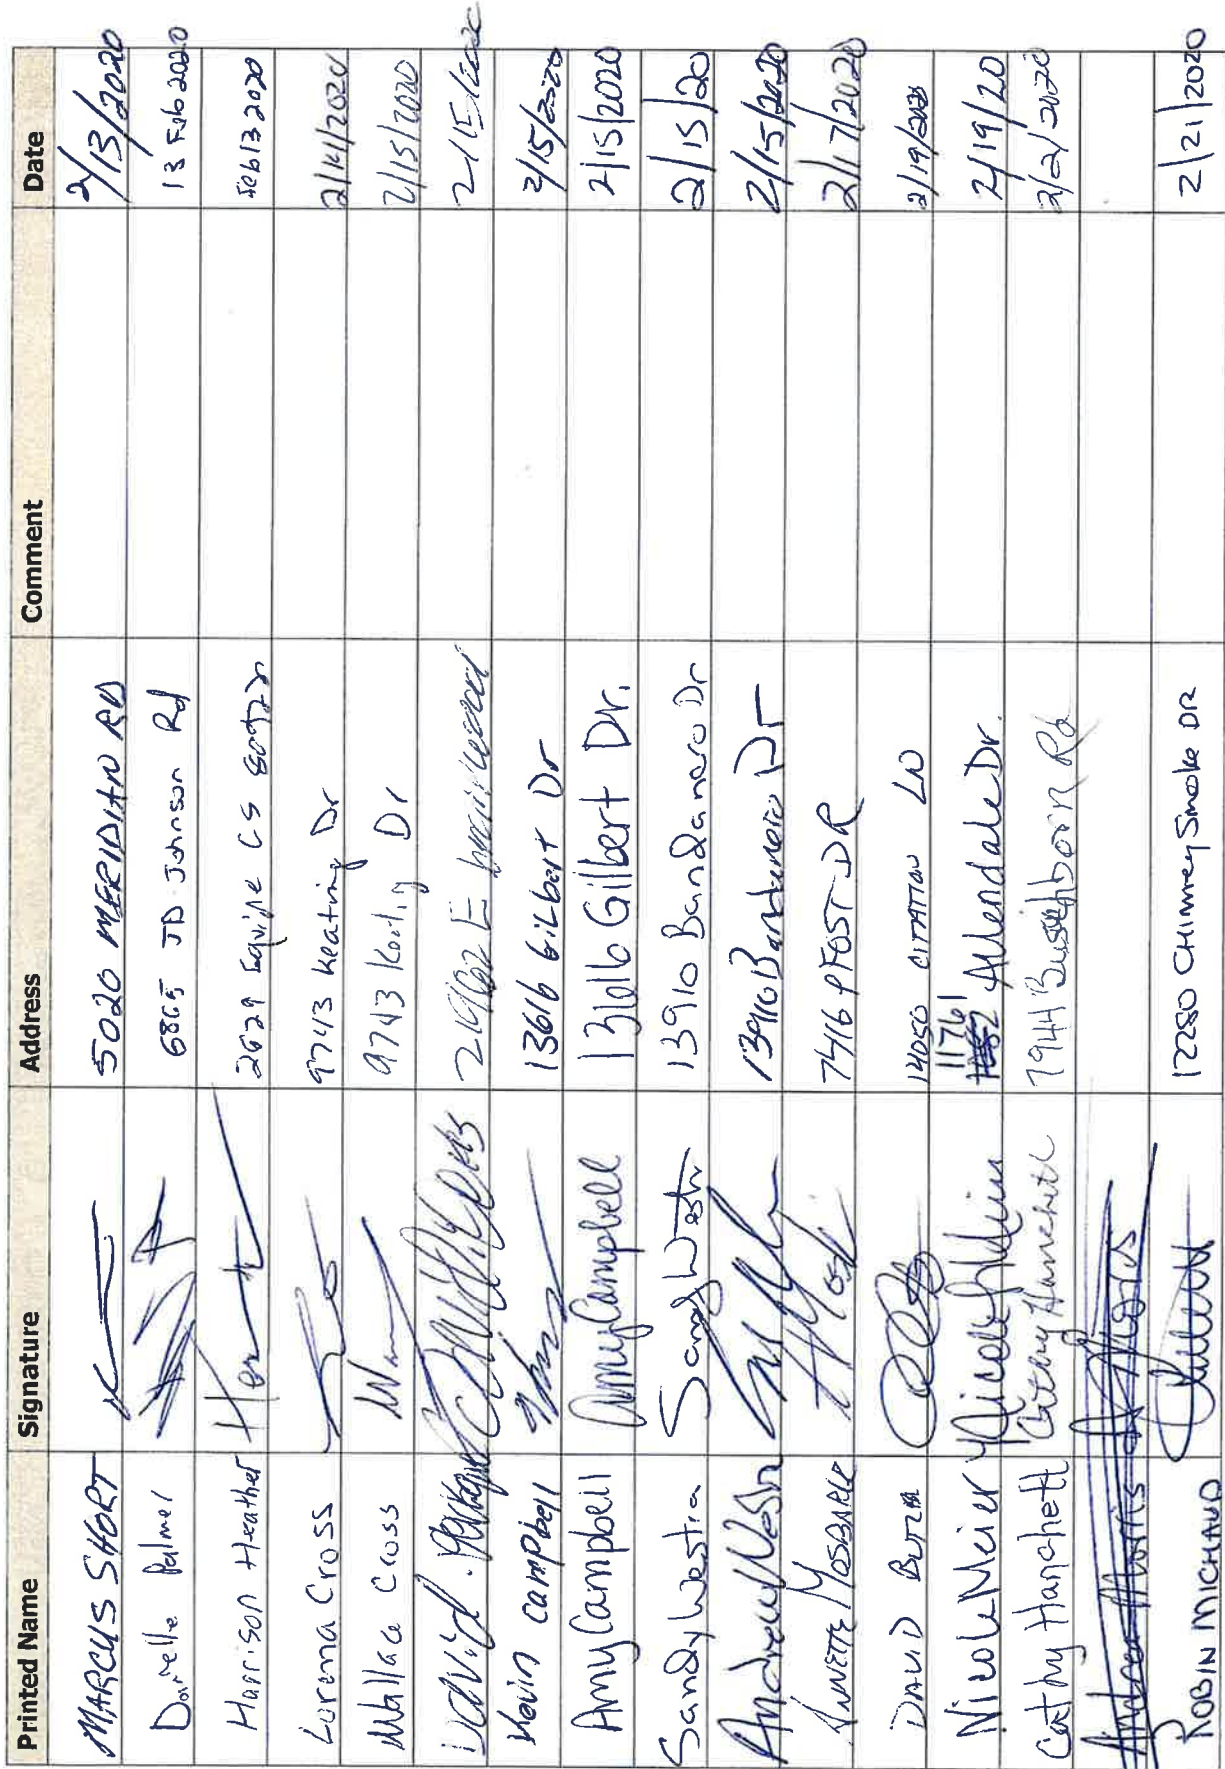 Printed Name Signature Address Comment Date
MARCUS SHORT 5020 MERIDIAN RD 2/13/2020
Danielle Palmer 6865 JD Johnson Rd 13 Feb 2020
Harrison Heather 2629 Equine CS 80922 Feb 13 2020
Lorena Cross 9743 Keating Dr 2/14/2020
Wallace Cross 9743 Dr 2/15/2020
David 2/15/2020
Kevin Campbell 13616 Gilbert Dr 2/15/2020
Amy Campbell Amy Campbell 13616 Gilbert Dr. 2/15/2020
Sandy Westra Sandy Westra 13910 Bandanero Dr 2/15/20
Andrew 13910 Bandanero Dr 2/15/2020
7416 PFOST DR 2/17/2020
DAVID BUTLER 14050 CITATION LN 2/19/2020
Nicole Meier Nicole Meier 11761 Allendale Dr. 2/19/20
Cathy Hanchett Cathy Hanchett 7944 Rd 2/2/2020
Andrea Morris
ROBIN MICHAUD 12280 CHIMNEY Smoke DR 2/21/2020